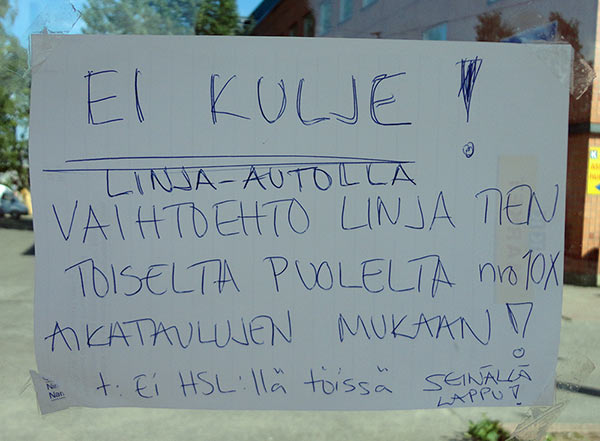 EI KULJE!
LINJA-AUTOLLA
VAIHTOEHTO LINJA TIEN
TOISELTA PUOLELTA nro 10X
AIKATAULUJEN MUKAAN!
t: Ei HSL:llä töissä
SEINÄLLÄ
LAPPU!